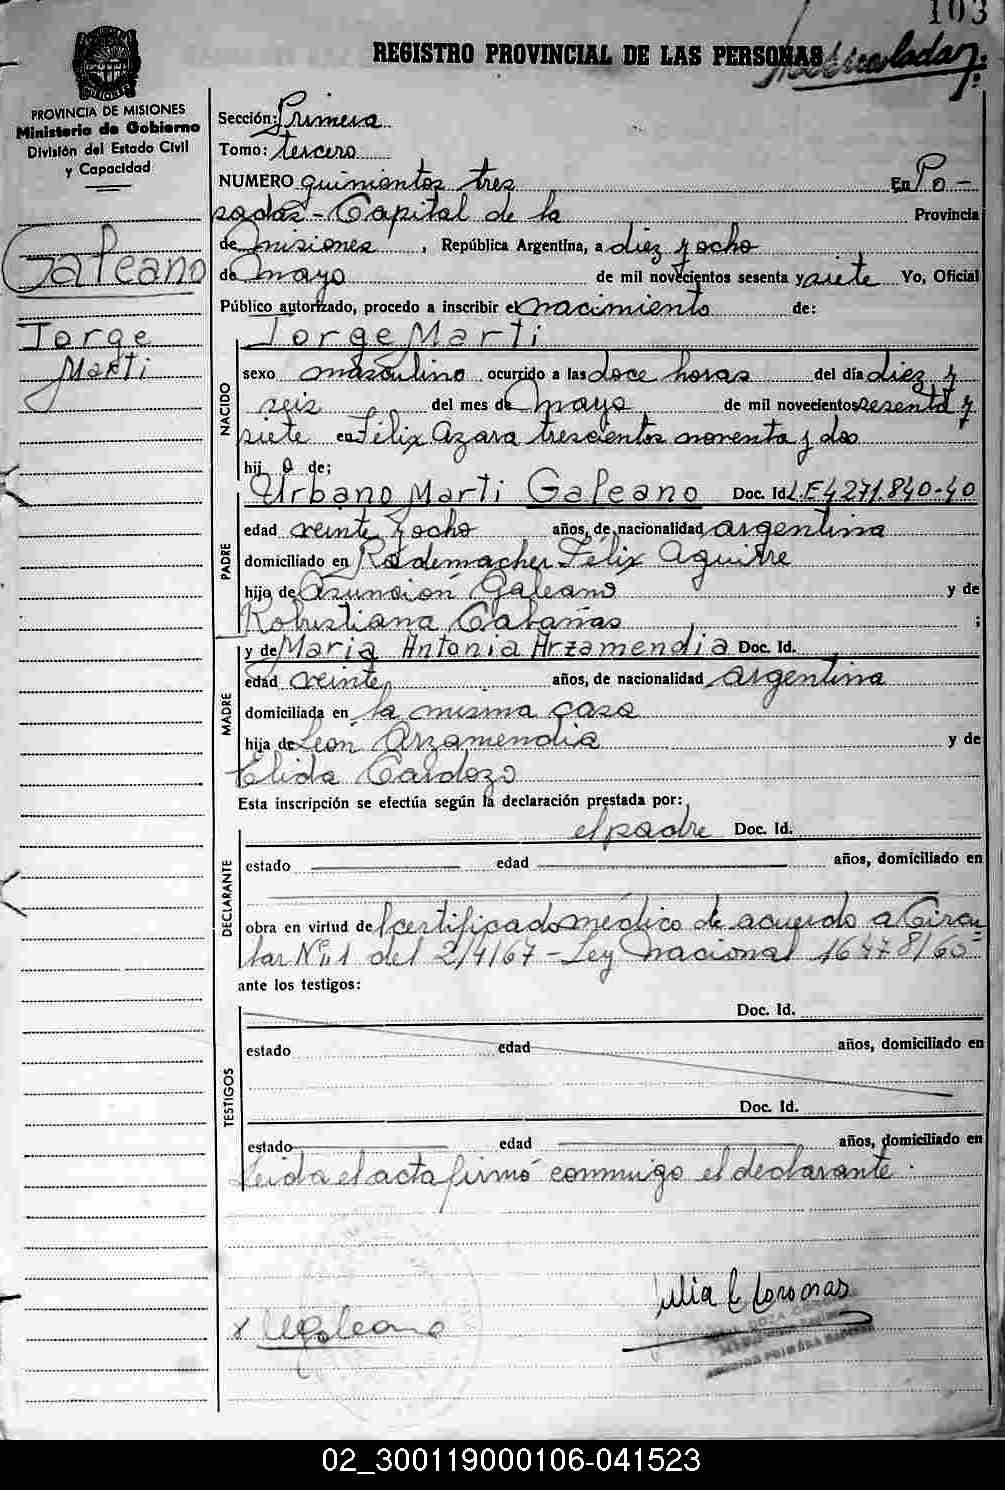 103
REGISTRO PROVINCIAL DE LAS PERSONAS
PROVINCIA DE MISIONES
Ministerio de Gobierno
División del Estado Civil
y Capacidad
Galeano
Jorge
Marti
Sección: Primera
Tomo: tercero
NUMERO quinientos tres En Po-
sadas - Capital de la Provincia
de Misiones, República Argentina, a diez y ocho
de mayo de mil novecientos sesenta y siete Yo, Oficial
Público autorizado, procedo a inscribir el nacimiento de:
NACIDO
Jorge Marti
sexo masculino ocurrido a las doce horas del día diez y
seis del mes de Mayo de mil novecientos sesenta y
siete en Félix Azara trescientos noventa y dos
hijo de;
PADRE
Urbano Marti Galeano Doc. Id. L.E 4271.840-40
edad veinte y ocho años, de nacionalidad argentina
domiciliado en Rademacher Félix Aguirre
hijo de Asunción Galeano y de
Robustiana Cabañas ;
MADRE
y de Maria Antonia Arzamendia Doc. Id.
edad veinte años, de nacionalidad argentina
domiciliada en la misma casa
hija de León Arzamendia y de
Elida Cardozo
Esta inscripción se efectúa según la declaración prestada por:
DECLARANTE
el padre Doc. Id.
estado edad años, domiciliado en
obra en virtud del certificado médico de acuerdo a Circu
lar Nº 1 del 2/4/67 - Ley nacional 16478/60
ante los testigos:
TESTIGOS
Doc. Id.
estado edad años, domiciliado en
Doc. Id.
estado edad años, domiciliado en
Leida el acta firmó conmigo el declarante.
x UGaleano
Julia
02_300119000106-041523